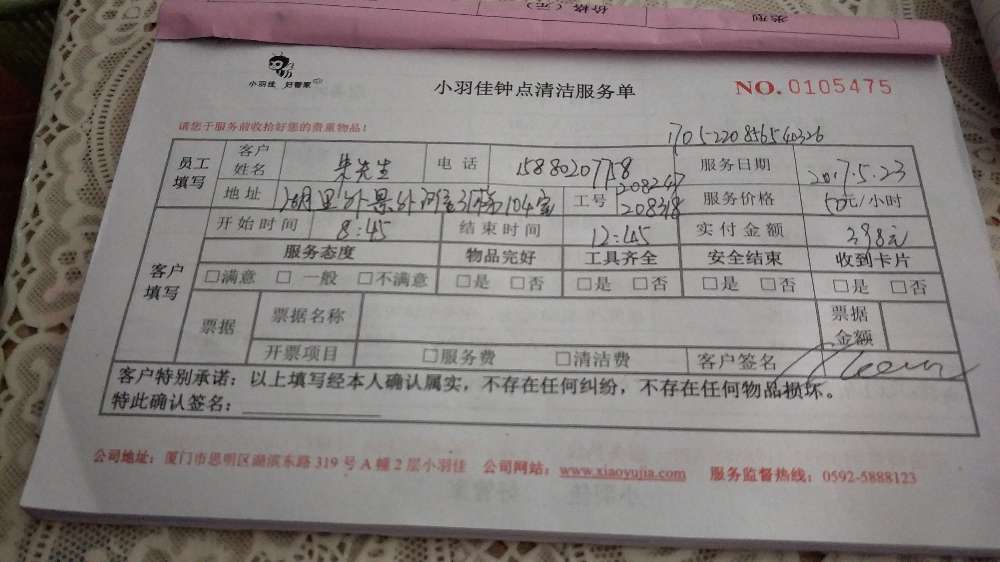 价格（元） 类型
小羽佳 好管家
小羽佳钟点清洁服务单
NO. 0105475
请您于服务前收拾好您的贵重物品！
1705220856540326
员工填写 客户姓名 朱先生 电话 15880207758 服务日期 2017.5.23
地址 104室 工号 208247 208318 服务价格 50元/小时
开始时间 8:45 结束时间 12:45 实付金额 398元
客户填写 服务态度 物品完好 工具齐全 安全结束 收到卡片
□满意 □一般 □不满意 □是 □否 □是 □否 □是 □否 □是 □否
票据 票据名称 票据金额
开票项目 □服务费 □清洁费 客户签名
客户特别承诺：以上填写经本人确认属实，不存在任何纠纷，不存在任何物品损坏。
特此确认签名：
公司地址：厦门市思明区湖滨东路 319 号 A 幢 2 层小羽佳 公司网站：www.xiaoyujia.com 服务监督热线：0592-5888123